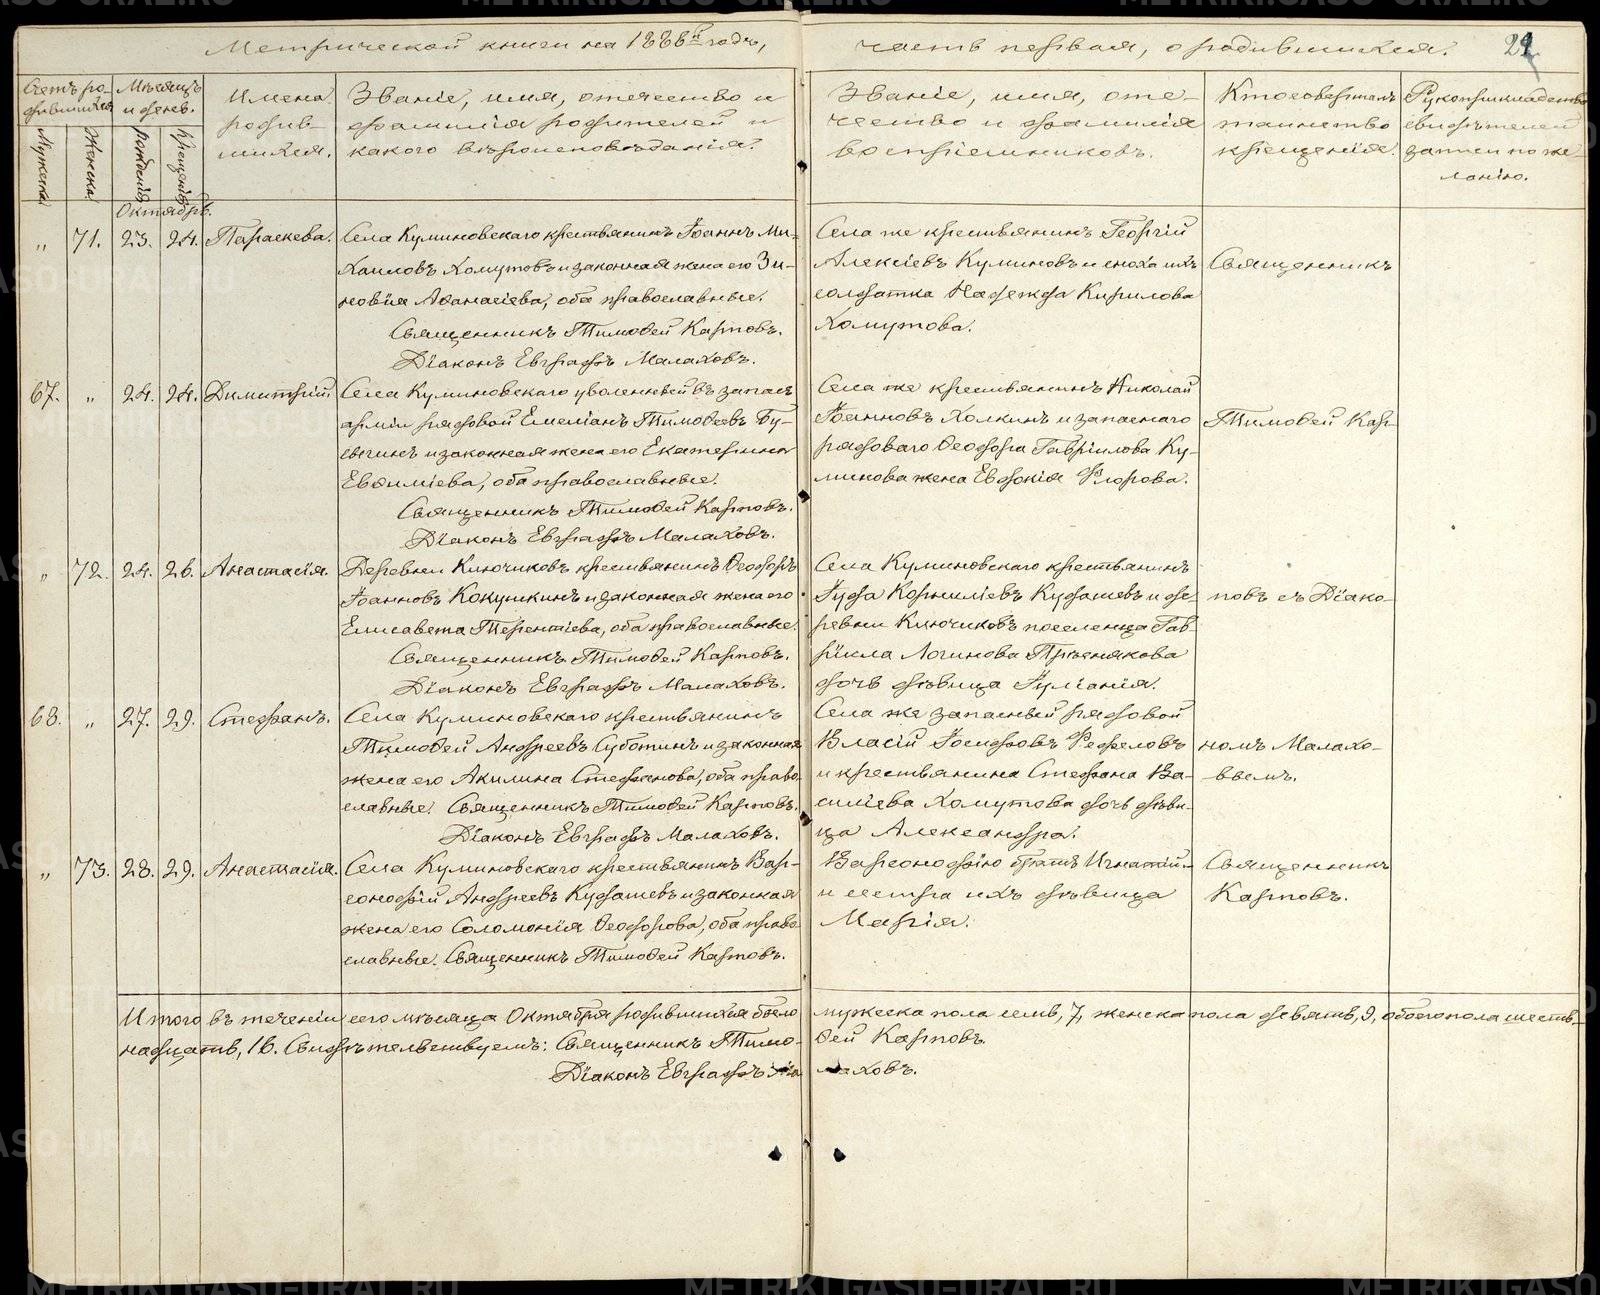 Метрической книги на 1886й годъ,
часть первая, о родившихся.
Счетъ ро-
дившихся
Мужеска.
Женска.
Мѣсяцъ
и день.
рожденія.
крещенія.
Имена
родив-
шихся.
Званіе, имя, отечество и
фамилія родителей и
какого вѣроисповѣданія.
Званіе, имя, оте-
чество и фамилія
воспріемниковъ.
Кто совершалъ
таинство
крещенія.
Рукоприкладство
свидѣтелей
записи по же-
ланію.
Октябрь.
„ 71. 23. 24. Параскева.
Села Куминовскаго крестьянинъ Іоаннъ Ми-
хаиловъ Хомутовъ и законная жена его Зи-
новія Аѳанасіева, оба православные.
Священникъ Тимоѳей Карповъ.
Діаконъ Евграфъ Малаховъ.
Села же крестьянинъ Георгій
Алексіевъ Куминовъ и сноха ихъ
солдатка Надежда Кирилова
Хомутова.
67. „ 24. 24. Димитрій.
Села Куминовскаго уволенный въ запасъ
арміи рядовой Емеліанъ Тимоѳеевъ Бу-
сыгинъ и законная жена его Екатерина
Евѳиміева, оба православные.
Священникъ Тимоѳей Карповъ.
Діаконъ Евграфъ Малаховъ.
Села же крестьянинъ Николай
Іоанновъ Холкинъ и запаснаго
рядоваго Ѳеодора Гавріилова Ку-
минова жена Евдокія Флорова.
„ 72. 24. 26. Анастасія.
Деревни Ключиковъ крестьянинъ Ѳеодоръ
Іоанновъ Кокушкинъ и законная жена его
Елисавета Терентіева, оба православные.
Священникъ Тимоѳей Карповъ.
Діаконъ Евграфъ Малаховъ.
Села Куминовскаго крестьянинъ
Іуда Корниліевъ Кудашевъ и де-
ревни Ключиковъ поселенца Гав-
ріила Логинова Трѣенякова
дочь дѣвица Іуліанія.
68. „ 27. 29. Стефанъ.
Села Куминовскаго крестьянинъ
Тимоѳей Андреевъ Суботинъ и законная
жена его Акилина Стефанова, оба право-
славные. Священникъ Тимоѳей Карповъ.
Діаконъ Евграфъ Малаховъ.
Села же запасный рядовой
Власій Іосифовъ Феделовъ
и крестьянина Стефана Ва-
силіева Хомутова дочь дѣви-
ца Александра.
Священникъ
Тимоѳей Кар-
повъ съ Діако-
номъ Малахо-
вымъ.
„ 73. 28. 29. Анастасія.
Села Куминовскаго крестьянинъ Вар-
сонофій Андреевъ Кудашевъ и законная
жена его Соломонія Ѳеодорова, оба право-
славные. Священникъ Тимоѳей Карповъ.
Варсонофію братъ Игнатій
и сестра ихъ дѣвица
Марія.
Священникъ
Карповъ.
Итого въ теченіи сего мѣсяца Октября родившихся было мужеска пола семь, 7, женска пола девять, 9, обоего пола шест-
надцать, 16. Свидѣтельствуемъ: Священникъ Тимо- ѳей Карповъ.
Діаконъ Евграфъ Малаховъ.
METRIKI.GASO-URAL.RU